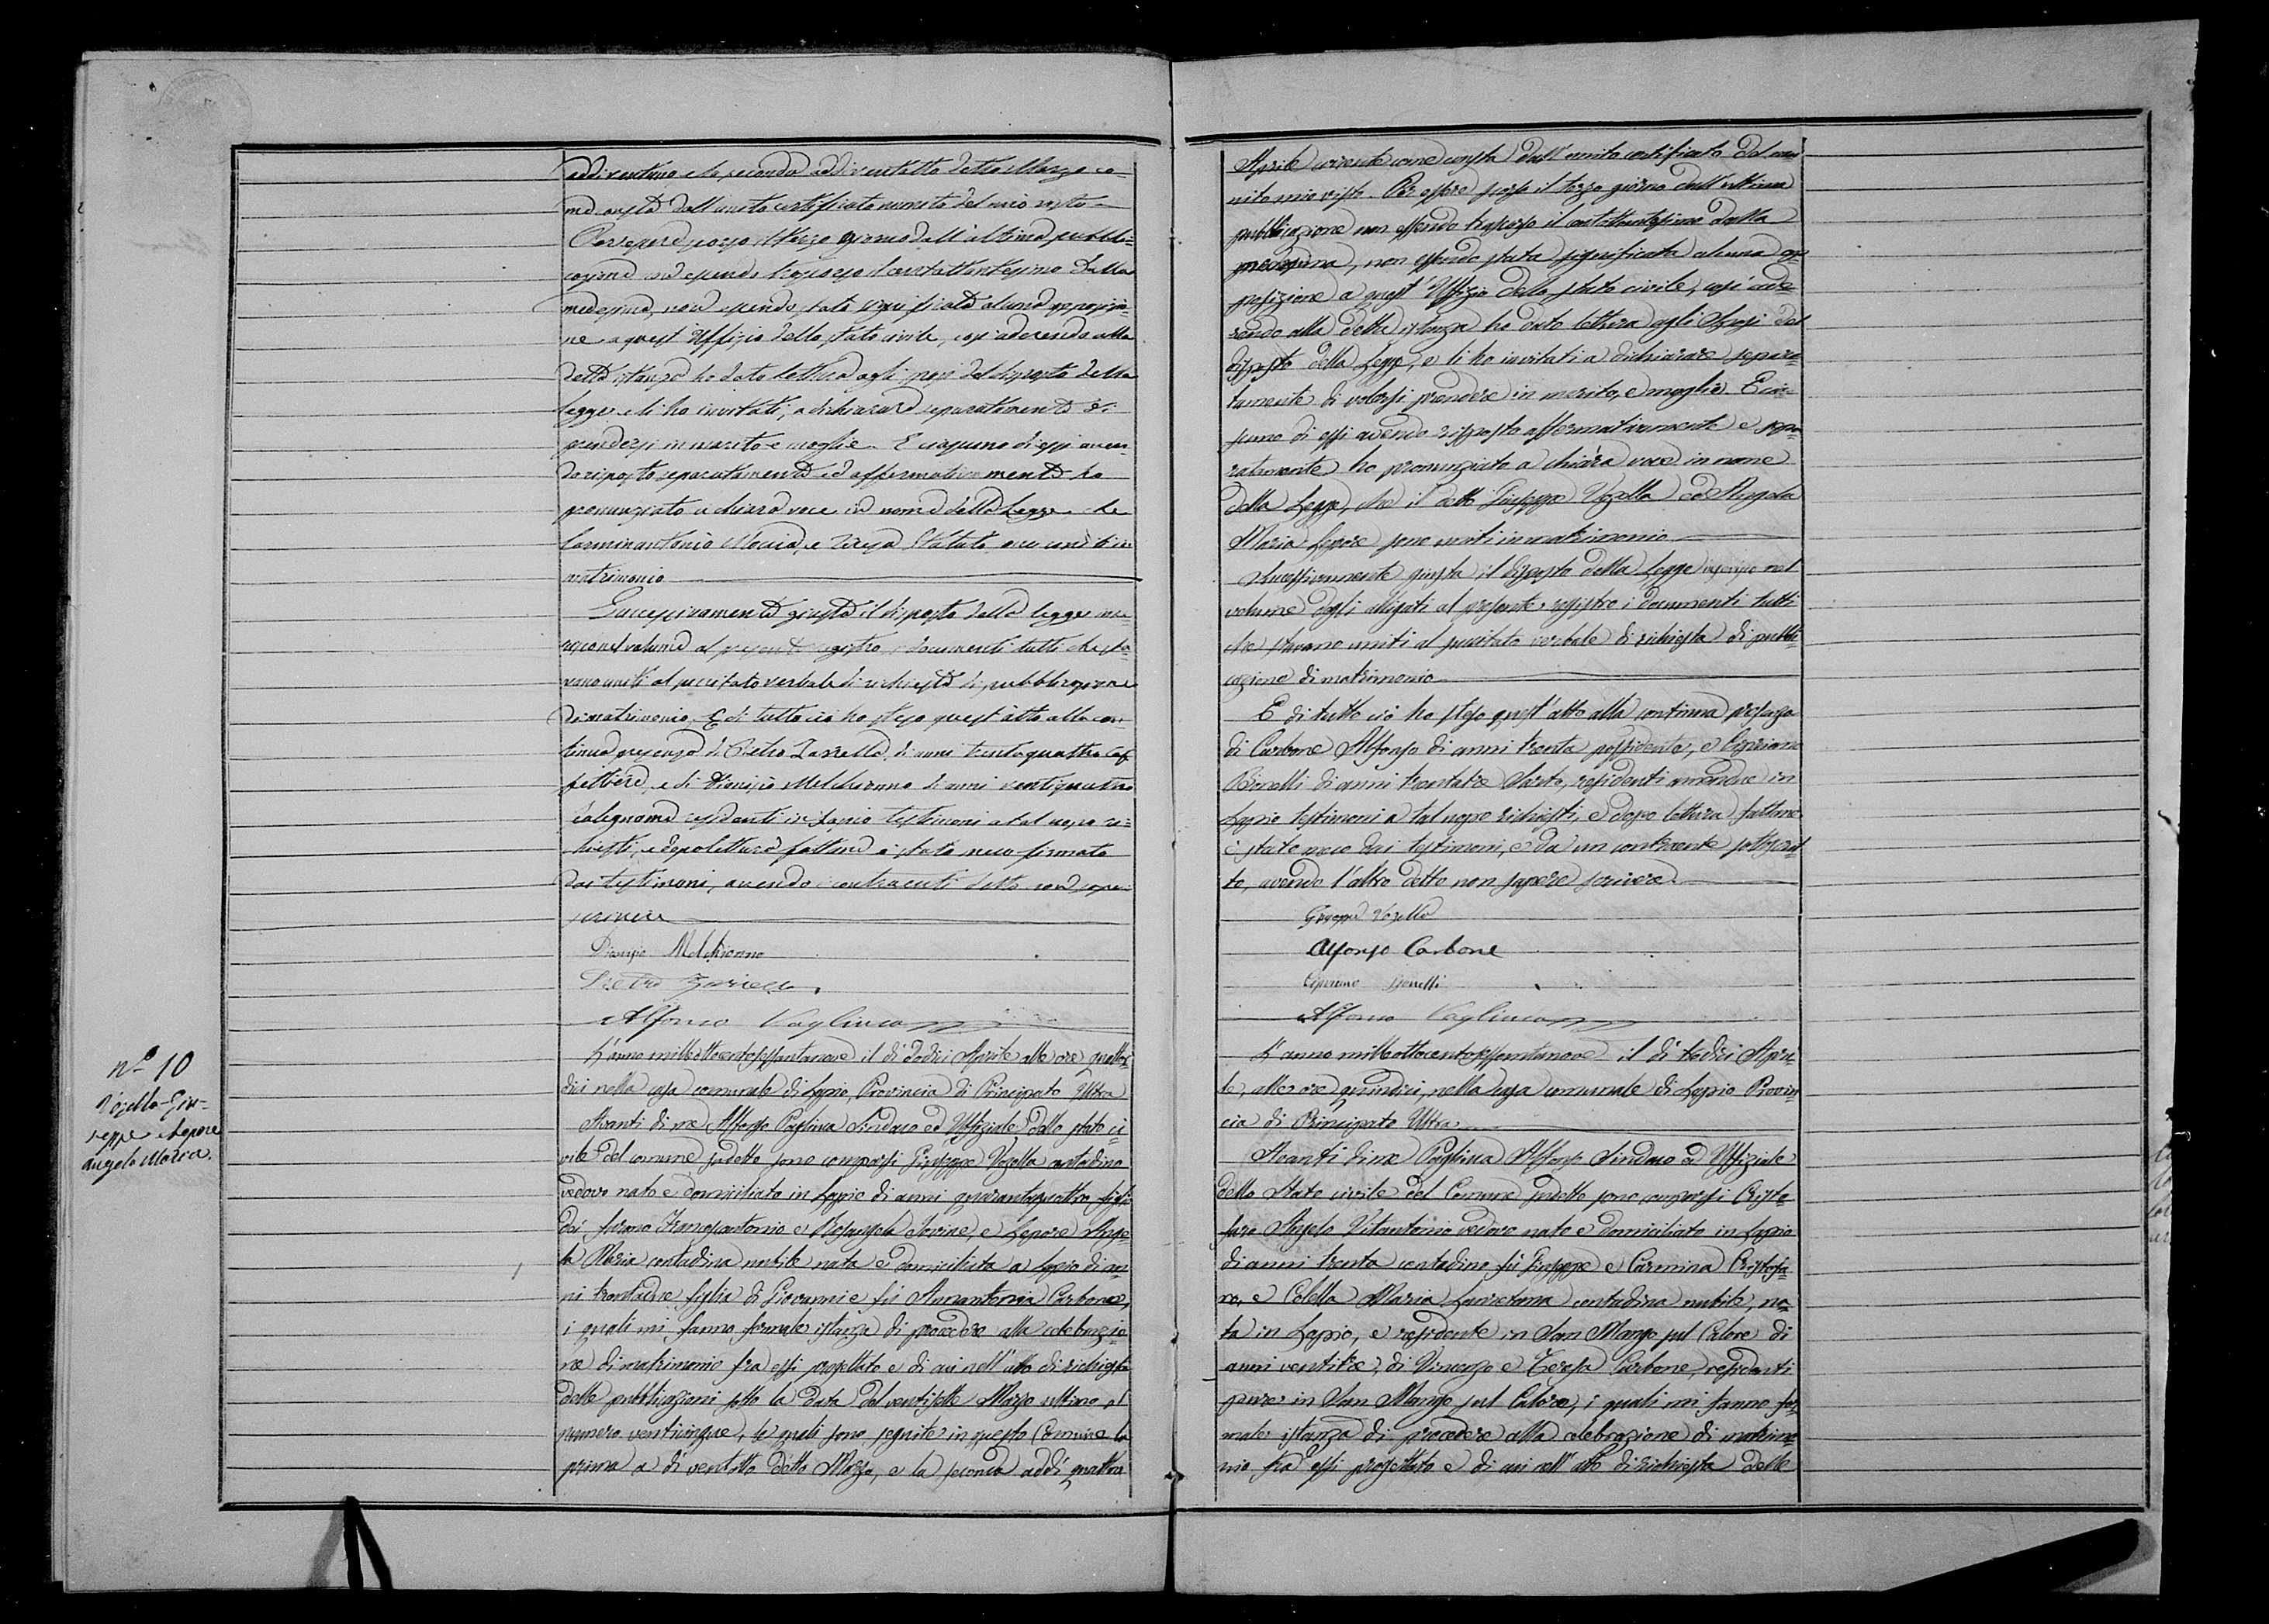 addì ventuno e la seconda addì ventotto detto Marzo co=
me consta dall'unito certificato munito del mio visto –
Per essere scorso il terzo giorno dall'ultima pubbli=
cazione non essendo trascorso il centottantesimo dalla
medesima, non essendo stata significata alcuna opposizio=
ne a quest'Uffizio dello stato civile, così aderendo alla
detta istanza ho dato lettura agli sposi del disposto della
legge e li ho invitati, a dichiarare separatamente di
prendersi in marito e moglie. E ciascuno di essi aven=
do risposto separatamente ed affermativamente ho
pronunziato a chiara voce in nome della Legge che
Carminantonio e Teresa sono uniti in
matrimonio
Successivamente giusta il disposto della legge inse=
risco nel volume al presente registro i documenti tutti che sta=
vano uniti al succitato verbale di richiesta di pubblicazione
di matrimonio. E di tutto ciò ho steso quest'atto alla con=
tinua presenza di Pietro Zarrella, di anni trentaquattro caf=
fettiere, e di Dionisio Melchionno di anni ventiquattro
falegname residenti in Lapio testimoni a tal uopo ri=
chiesti, e dopo lettura fattane è stato meco firmato
dai testimoni, avendo i contraenti detto non sapere
scrivere
Dionisio Melchionno
Pietro Zarrella
Alfonso Pagliuca
nº 10
Vozella Giu=
seppe e Lepore
Angela Maria.
L'anno milleottocentosessantanove il dì dodici Aprile alle ore quattor=
dici nella casa comunale di Lapio, Provincia di Principato Ultra
Avanti di me Alfonso Pagliuca Sindaco ed Uffiziale dello stato ci=
vile del comune sudetto sono comparsi Giuseppe Vozella contadino
vedovo nato e domiciliato in Lapio di anni quarantaquattro figlio
dei furono e Rosangela Iovine, e Lepore Ange=
la Maria contadina nubile nata e domiciliata a Lapio di an=
ni trentadue figlia di Giovanni e fu Amantonia Carbone,
i quali mi fanno formale istanza di procedere alla celebrazio=
ne di matrimonio fra essi progettato e di cui nell'atto di richiesta
delle pubblicazioni sotto la data del ventisette Marzo ultimo, al
numero venticinque, le quali sono seguite in questo Comune la
prima a dì ventotto detto Marzo, e la seconda addì quattro
Aprile corrente come consta dall'unito certificato del mu=
nito mio visto. Per essere scorso il terzo giorno dall'ultima
pubblicazione non essendo trascorso il centottantesimo dalla
medesima, non essendo stata significata alcuna op=
posizione a quest'Uffizio dello stato civile, così ade=
rendo alla detta istanza ho dato lettura agli Sposi del
disposto della Legge, e li ho invitati a dichiarare separa=
tamente di volersi prendere in marito, e moglie. E cia=
scuno di essi avendo risposto affermativamente e sepa=
ratamente ho pronunziato a chiara voce in nome
della Legge, che il detto Giuseppe Vozella ed Angela
Maria Lepore sono uniti in matrimonio
Successivamente giusta il disposto della Legge inserisco nel
volume degli allegati al presente registro i documenti tutti
che stavano uniti al succitato verbale di richiesta di pubbli=
cazione di matrimonio
E di tutto ciò ho steso quest'atto alla continua presenza
di Carbone Alfonso di anni trenta possidente, e Cipriano
Bonelli di anni trentatre Sarto, residenti amendue in
Lapio testimoni a tal uopo richiesti, e dopo lettura fattane
è stato meco dai testimoni, e da un contraente sottoscrit=
to, avendo l'altro detto non sapere scrivere.
Giuseppe Vozella
Alfonso Carbone
Cipriano Bonelli
Alfonso Pagliuca
L'anno milleottocentosessantanove il dì tredici Apri=
le, alle ore quindici, nella casa comunale di Lapio Provin=
cia di Principato Ultra
Avanti di me Pagliuca Alfonso Sindaco ed Uffiziale
dello Stato civile del Comune sudetto sono comparsi Cristo=
faro Angelo Vitantonio vedovo nato e domiciliato in Lapio
di anni trenta contadino fu Giuseppe e Carmina Cristofa=
ro, e Colella Maria Lauretana contadina nubile, na=
ta in Lapio, e residente in San Mango sul Calore di
anni ventitre, di Vincenzo e Teresa Carbone, residenti
pure in San Mango sul Calore, i quali mi fanno for=
male istanza di procedere alla celebrazione di matrimo=
nio fra essi progettato e di cui nell'atto di richiesta delle